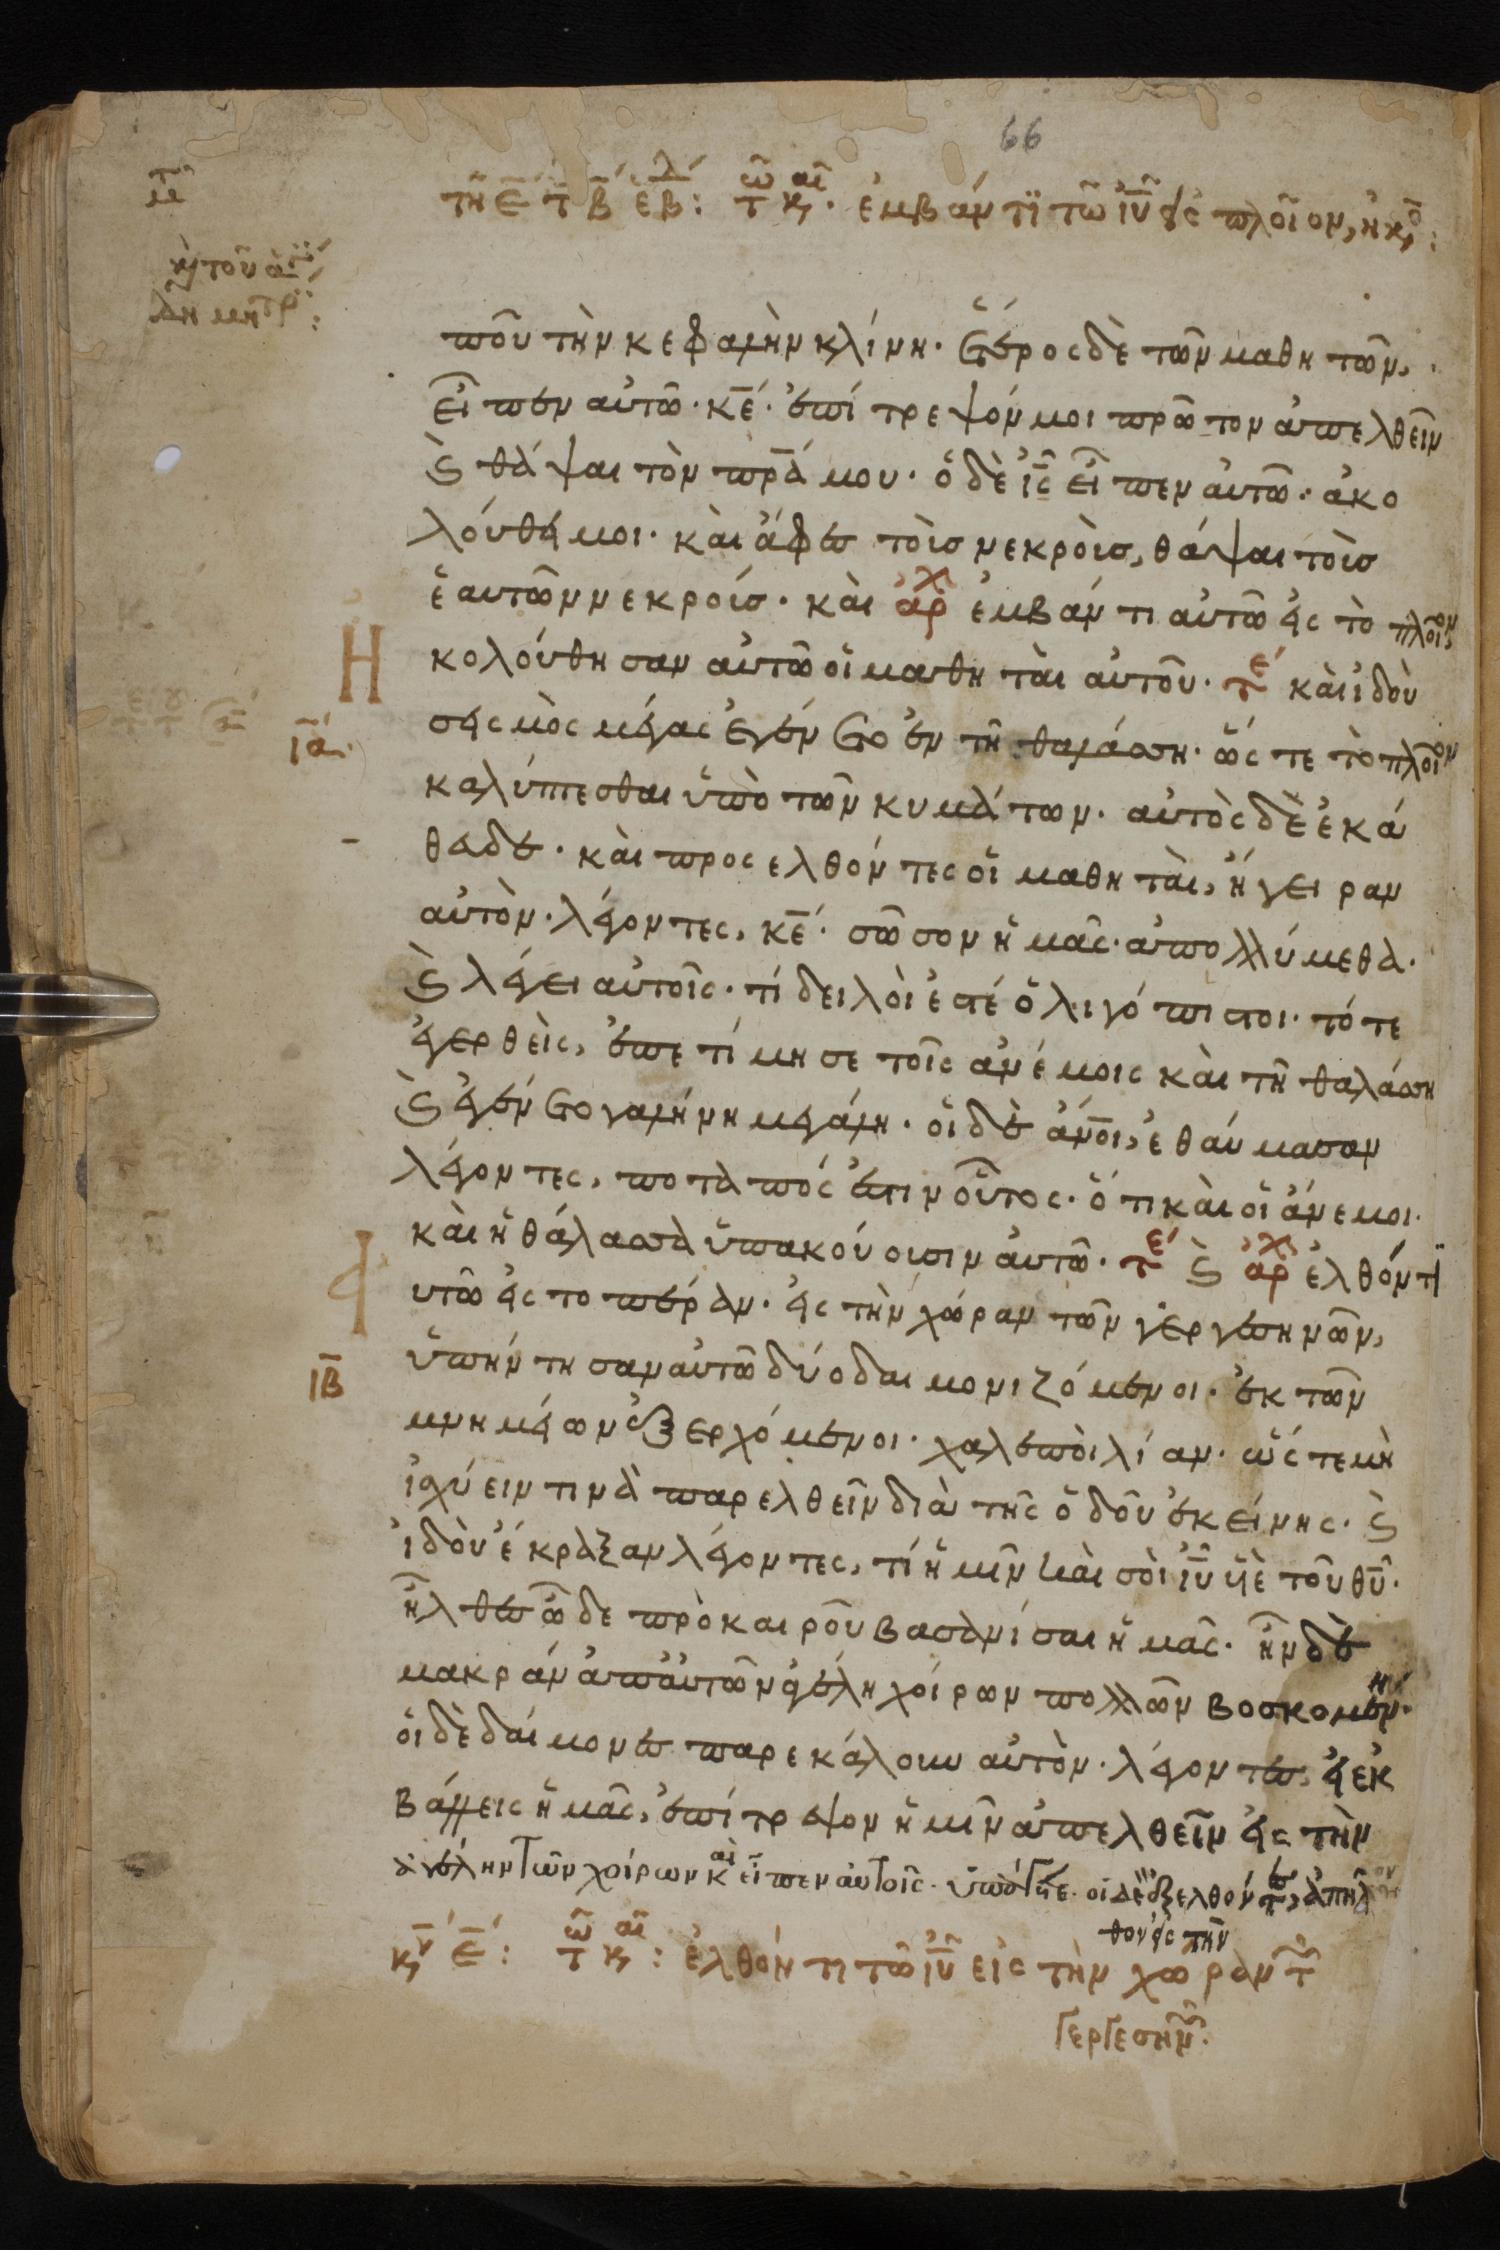 66
τῆ ε̄ τ β̄ ἑβ: τῶ κ,αι. ἐμβάντι τῶ ἰῦ εἰς πλοῖον, ἠκ,ο:
κ, τοῦ ἁγί
Δημητρ:
ποῦ τὴν κεφαλὴν κλίνη. ἕτερος δὲ τῶν μαθητῶν,
εἶπεν αὐτῶ. κε̄. ἐπίτρεψόν μοι πρῶτον ἀπελθεῖν
κ θάψαι τὸν πρ̄α μου. ὁ δὲ ἰς̄ εἶπεν αὐτῶ. ἀκο
λούθει μοι. καὶ ἄφες τοὺσ νεκροὺσ, θάψαι τοὺσ
ἑαυτῶν νεκρούσ. καὶ ἀρχ ἐμβάντι αὐτῶ εἰς τὸ πλοῖον,
Ἠκολούθησαν αὐτῶ οἱ μαθηταὶ αὐτοῦ. τε καὶ ἰδοὺ
ῑᾱ.
σεισμὸς μέγας ἐγένετο ἐν τῆ θαλάσση. ὥς τε τὸ πλοῖον
καλύπτεσθαι ὑπὸ τῶν κυμάτων. αὐτὸς δὲ ἐκά
θευδε. καὶ προσελθόντες οἱ μαθηταὶ, ἤγειραν
αὐτὸν. λέγοντες, κε̄. σῶσον ἡμᾶς. ἀπολλύμεθα.
κ λέγει αὐτοῖς. τί δειλοὶ ἐστέ ὀλιγόπιστοι. τότε
ἐγερθεὶς, ἐπετίμησε τοῖς ἀνέμοις καὶ τῆ θαλάσση
κ ἐγένετο γαλήνη μεγάλη. οἱ δὲ ἄνοι, ἐθαύμασαν
λέγοντες, ποταπός ἐστιν οὗτος. ὅτι καὶ οἱ ἄνεμοι.
καὶ ἡ θάλασσα ὑπακούουσιν αὐτῶ. τε κ ἀρχ ἐλθόντι
αυτῶ εἰς το πέραν. εἰς τὴν χώραν τῶν γεργεσηνῶν,
ῑβ̄
ὑπήντησαν αὐτῶ δύο δαιμονιζόμενοι. ἐκ τῶν
μνημείων ἐξερχόμενοι. χαλεποὶ λίαν. ὥς τε μὴ
ἰσχύειν τινὰ παρελθεῖν διὰ τῆς ὁδοῦ ἐκείνης. κ
ἰδοὺ ἔκραξαν λέγοντες, τί ἡμῖν καὶ σοὶ ἰῦ υἱὲ τοῦ θῡ.
ἦλθες ὧδε πρὸ καιροῦ βασανίσαι ἡμᾶς. ἦν δὲ
μακρὰν ἀπ' αὐτῶν ἀγέλη χοίρων πολλῶν βοσκομένη.
οἱ δὲ δαίμονες παρεκάλουν αὐτὸν. λέγοντες, εἰ ἐκ
βάλλεις ἡμᾶς, ἐπίτρεψον ἡμῖν ἀπελθεῖν εἰς τὴν
ἀγέλην τῶν χοίρων καὶ εἶπεν αὐτοῖς. ὑπάγετε. οἱ δὲ ἐξελθόντες, ἀπῆλ
θον εἰς τὴν
κ,υ ε̄: τῶ κ,αι: ἐλθόντι τῶ ἰῦ εἰς τὴν χώραν τ
Γεργεσηνῶν.